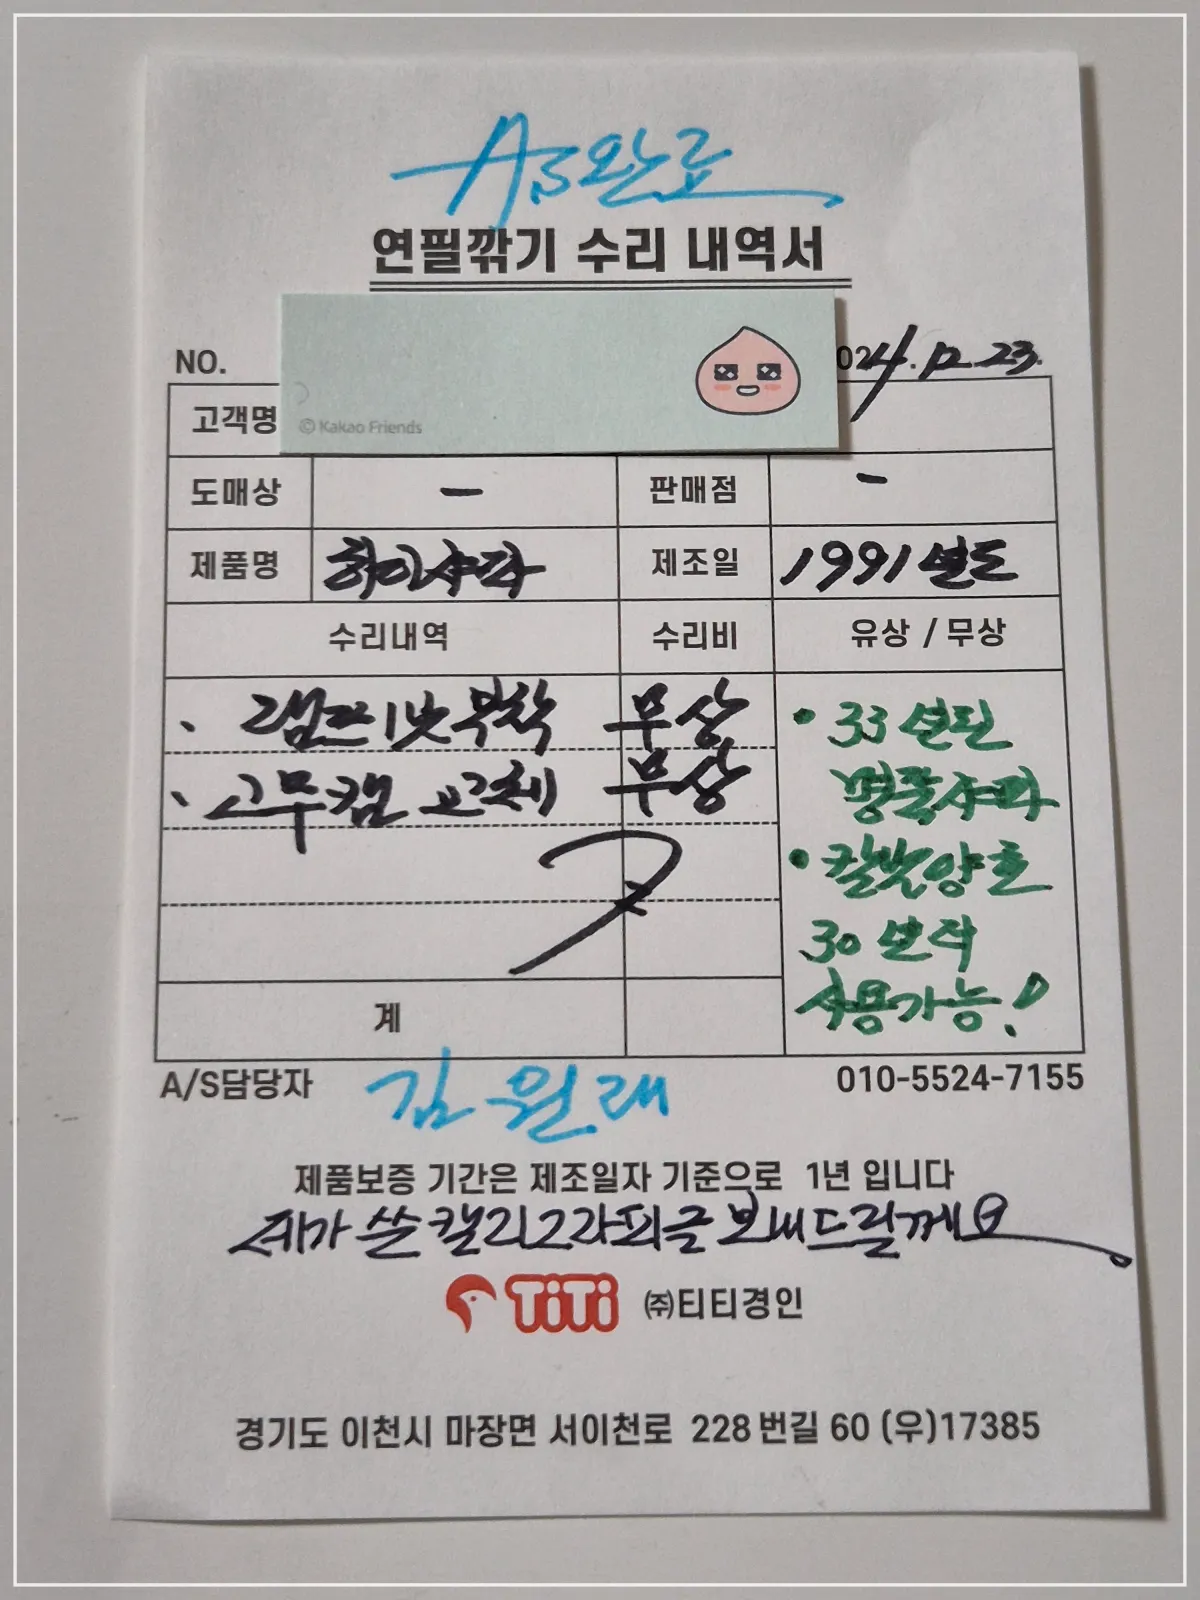 AS완료
연필깎기 수리 내역서
NO. 024.12.23.
고객명
© Kakao Friends
도매상 - 판매점 -
제품명 하이샤파 제조일 1991년도
수리내역 수리비 유상 / 무상
· 램프 1번 부착 무상
· 고무캡 교체 무상
• 33년된
명품샤파
• 칼날양호
30년더
사용가능!
계
A/S담당자 김원래 010-5524-7155
제품보증 기간은 제조일자 기준으로 1년 입니다
제가 쓴 캘리그라피글 보내드릴께요
TiTi ㈜티티경인
경기도 이천시 마장면 서이천로 228번길 60 (우)17385